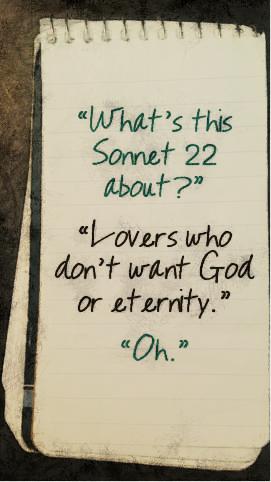 “What's this
Sonnet 22
about?”
“Lovers who
don't want God
or eternity.”
“Oh.”